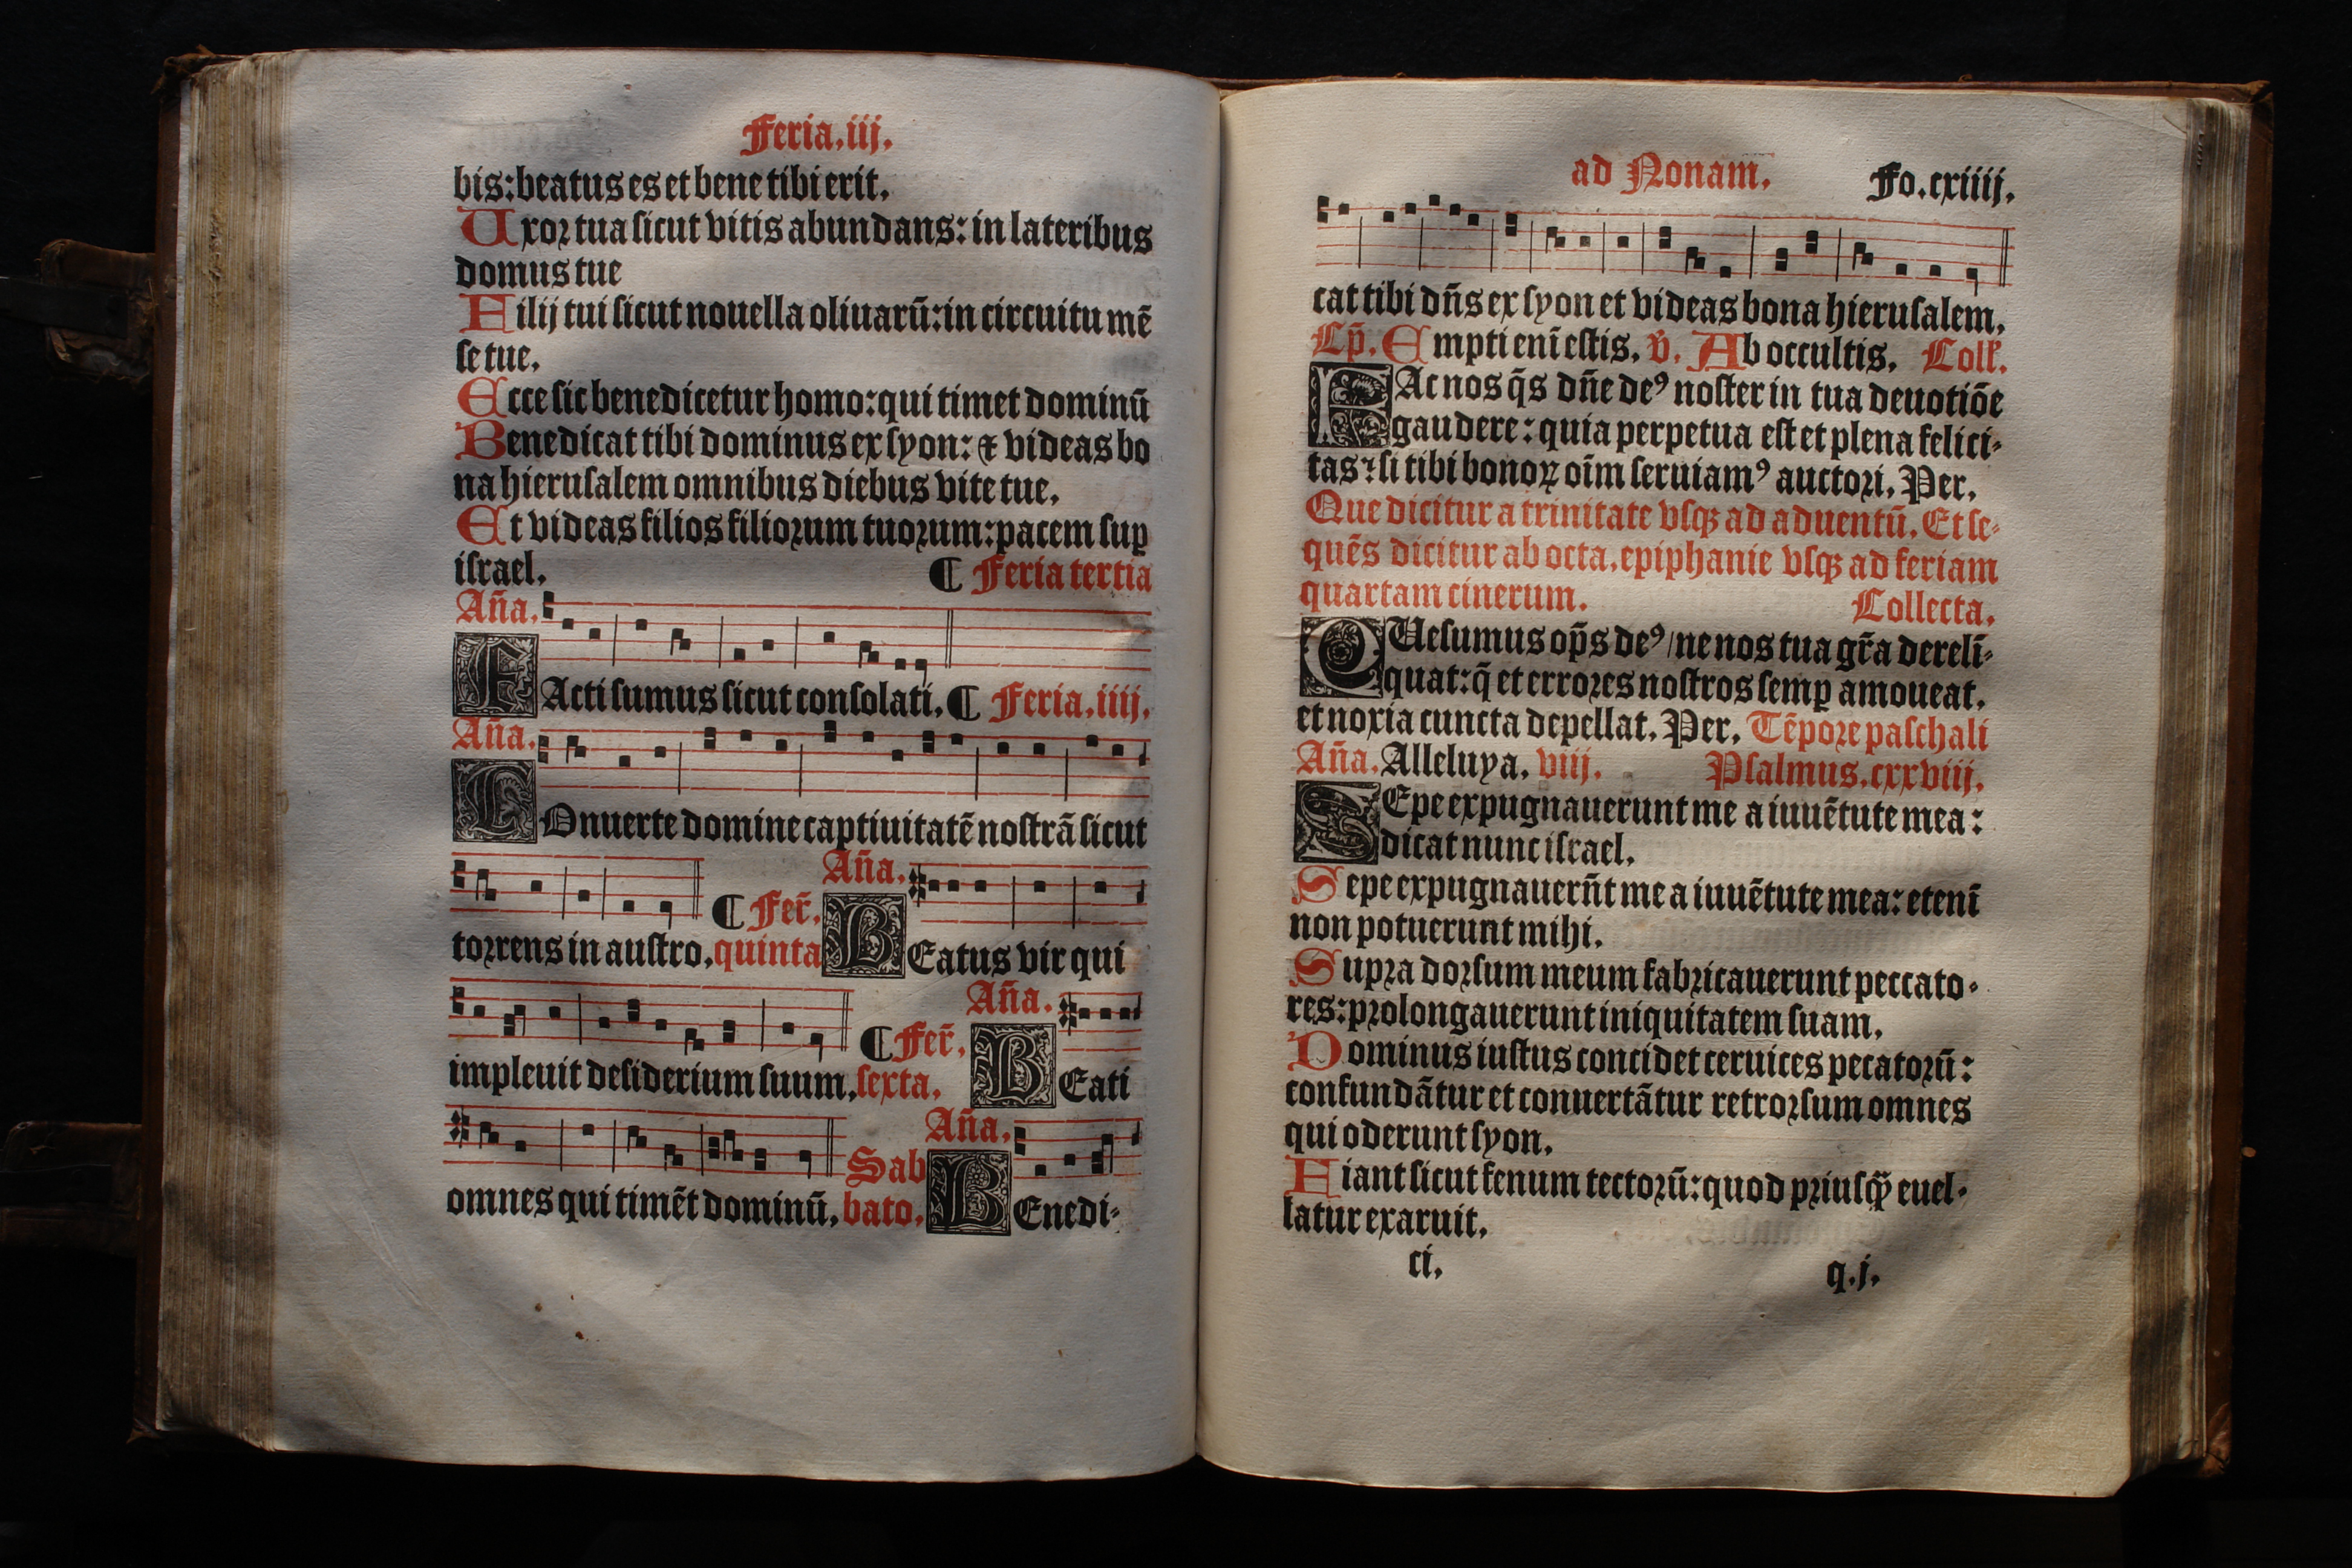 Feria.iij.
bis:beatus es et bene tibi erit.
Uxor tua sicut vitis abundans: in lateribus
domus tue
Filij tui sicut nouella oliuarū: in circuitu mē
se tue.
Ecce sic benedicetur homo: qui timet dominū
Benedicat tibi dominus ex syon: & videas bo
na hierusalem omnibus diebus vite tue.
Et videas filios filiorum tuorum: pacem suꝑ
israel. ¶ Feria tertia
Añа.
FActi sumus sicut consolati. ¶ Feria.iiij.
Aña.
COnuerte domine captiuitatē nostrā sicut
Aña.
¶ Fer̄.
torrens in austro. quinta BEatus vir qui
Aña.
¶ Fer̄.
impleuit desiderium suum. sexta. BEati
Aña.
Sab
omnes qui timēt dominū. bato. BEnedi-
ad Nonam. Fo.cxiiij.
cat tibi dñs ex syon et videas bona hierusalem.
Cp̄. Empti enī estis. v̄. Ab occultis. Coll'.
FAc nos q̄s dñe deꝰ noster in tua deuotiōe
gaudere: quia perpetua est et plena felici-
tas: si tibi bonoꝝ oīm seruiamꝰ auctori. Per.
Que dicitur a trinitate vsqꝫ ad aduentū. Et se-
quēs dicitur ab octa. epiphanie vsqꝫ ad feriam
quartam cinerum. Collecta.
QUesumus op̄s deꝰ/ ne nos tua gr̄a dereli-
quat: q̄ et errores nostros semꝑ amoueat.
et noxia cuncta depellat. Per. Tēpore paschali
Aña. Alleluya. viij. Psalmus.cxxviij.
SEpe expugnauerunt me a iuuētute mea:
dicat nunc israel.
Sepe expugnauerūt me a iuuētute mea: etenī
non potuerunt mihi.
Supra dorsum meum fabricauerunt peccato-
res: prolongauerunt iniquitatem suam.
Dominus iustus concidet ceruices pecatorū:
confundātur et conuertātur retrorsum omnes
qui oderunt syon.
Fiant sicut fenum tectorū: quod priusꝙ̄ euel-
latur exaruit.
ci. q.j.